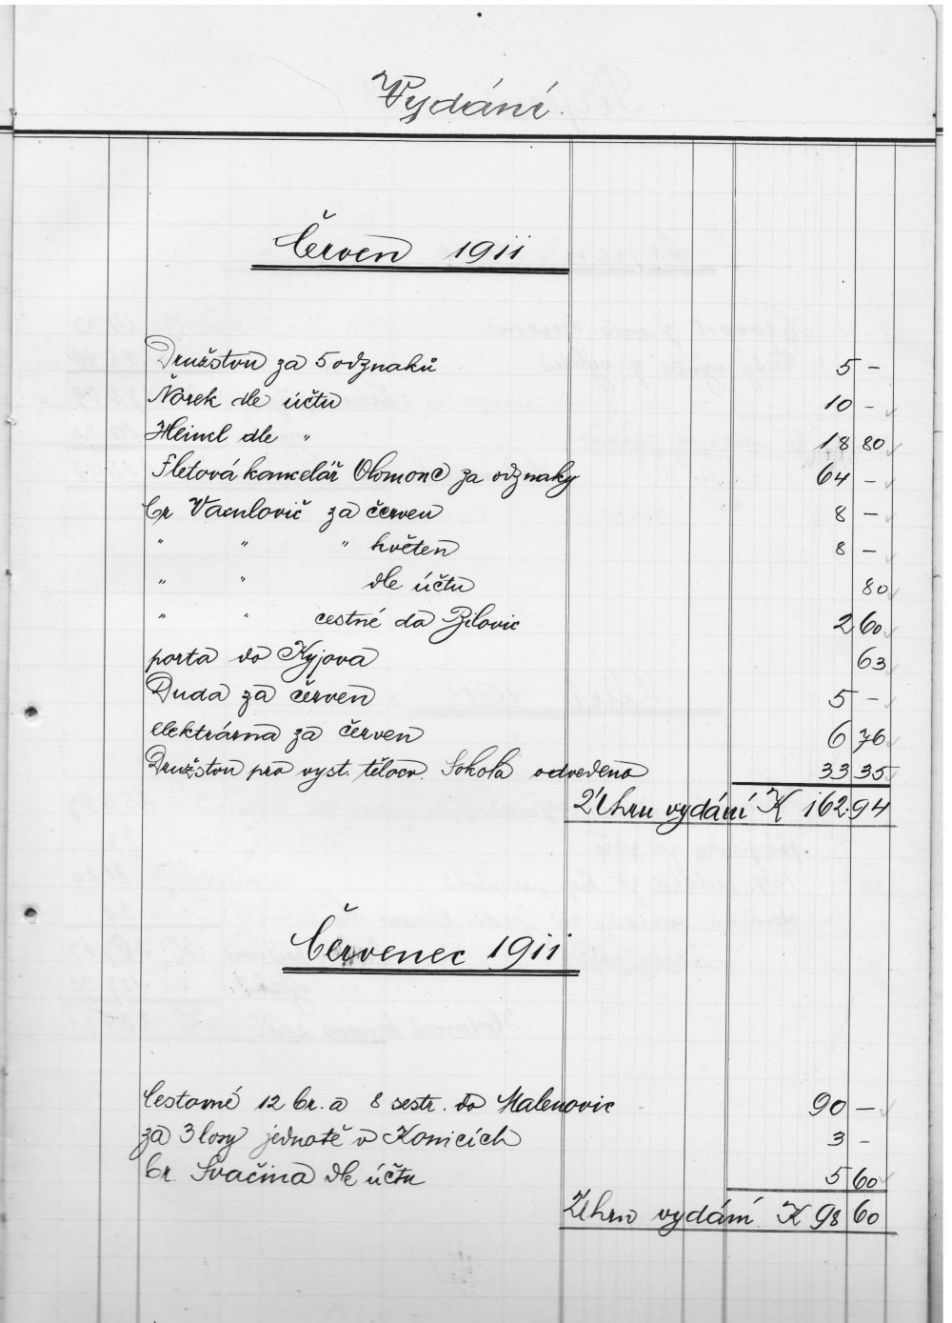 Vydání.
Červen 1911
Družstvu za 5 odznaků 5 -
Norek dle účtu 10 -
Heincl dle " 18 80
kancelář Olomouc za odznaky 64 -
br Vaculovič za červen 8 -
" " " květen 8 -
" " dle účtu 80
" " cestné do Bílovic 2 60
porta do Kyjova 63
Duda za červen 5 -
elektrárna za červen 6 76
Družstvu pro vyst. tělocv. Sokola odvedeno 33 35
Úhrn vydání K 162.94
Červenec 1911
Cestovné 12 br. a 8 sestr. do Malenovic 90 -
za 3 losy jednotě v Konicích 3 -
br. Svačina dle účtu 5 60
Úhrn vydání K 98 60